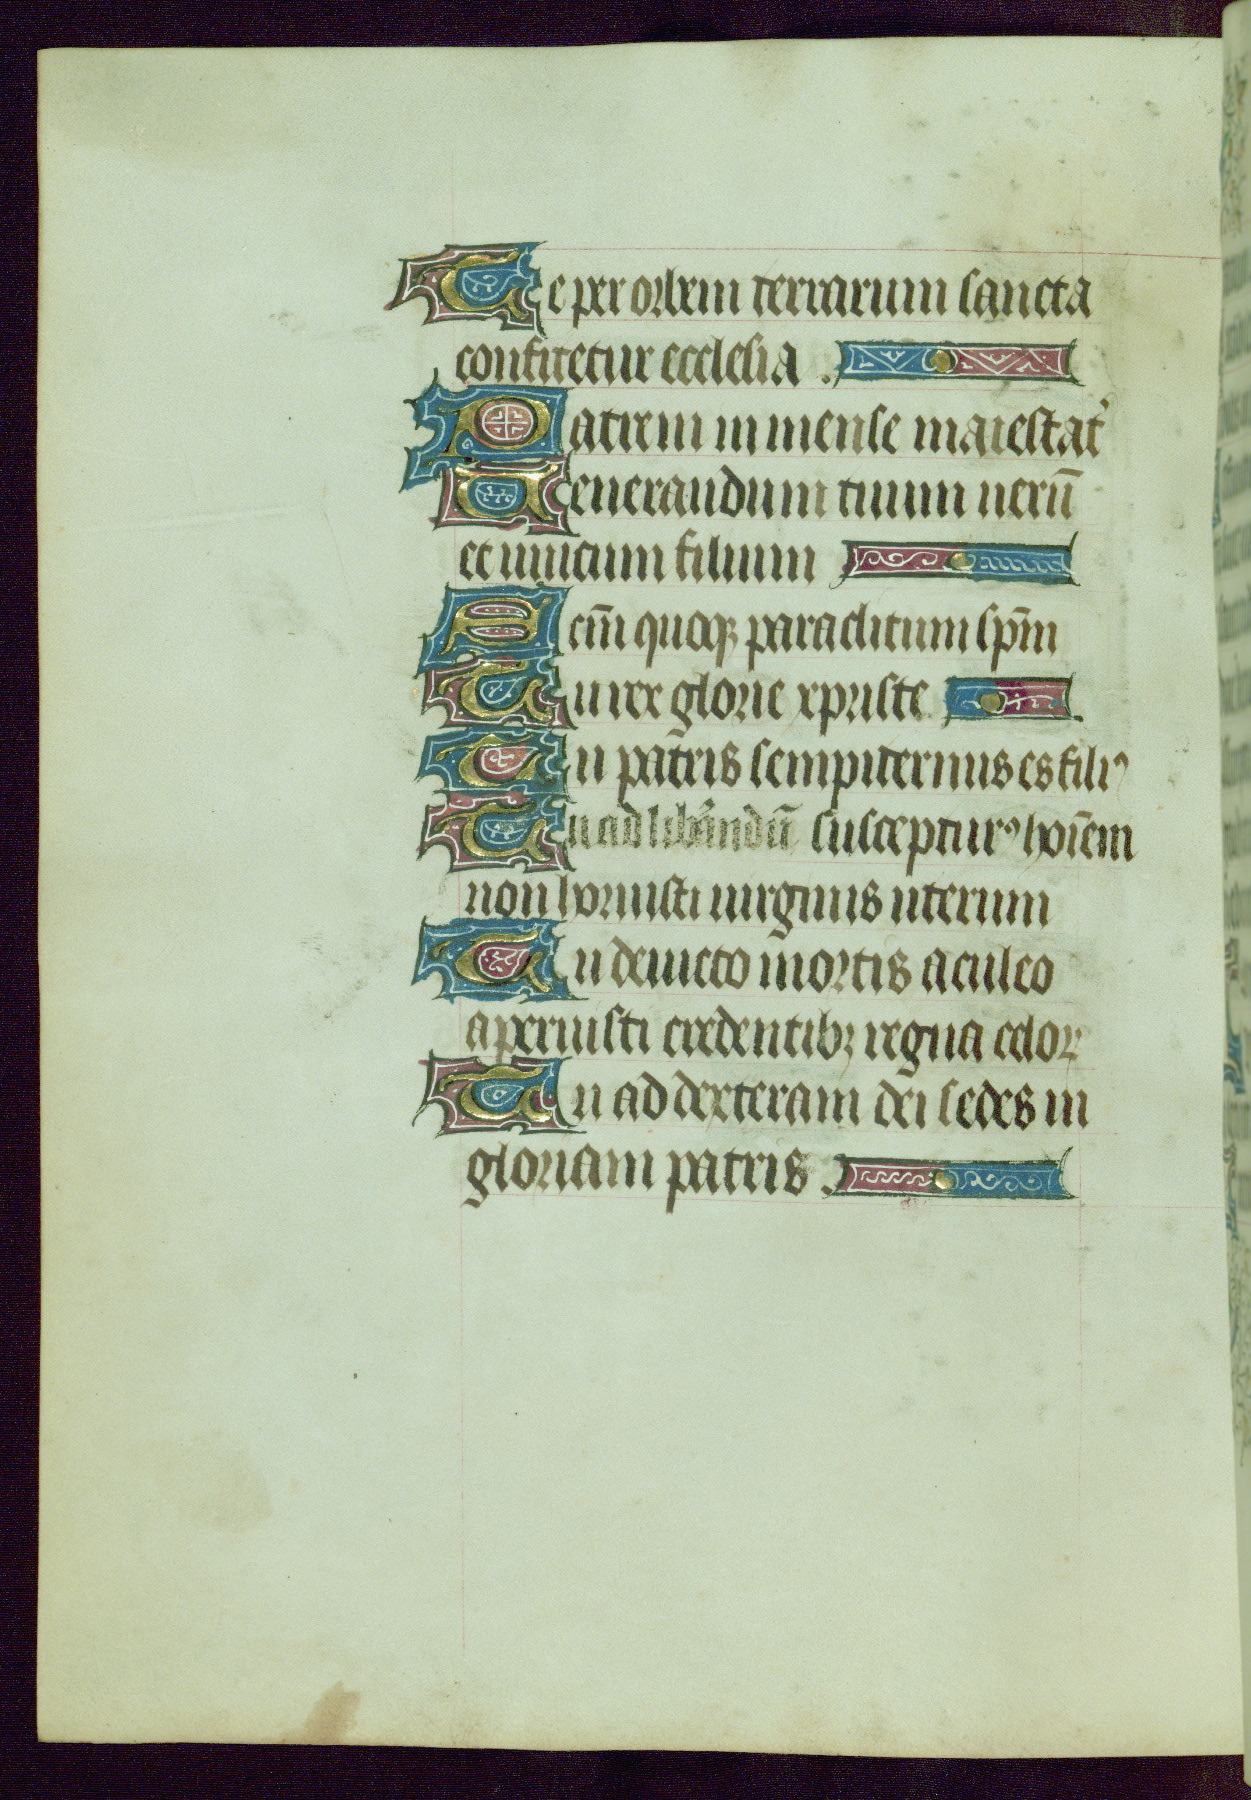 Te per orbem terrarum sancta
confitetur ecclesia .
Patrem inmense maiestat᷒
Uenerandum tuum uerū
et unicum filium
Scm̄ quoqꝫ paraclitum sp̄m
Tu rex glorie xpriste
Tu patris sempiternus es filiꝰ
Tu ad libʼandū suscepturꝰ hoīem
non horruisti uirginis uterum
Tu deuicto mortis aculeo
aperuisti credentibꝫ regna celoꝝ
Tu ad dexteram dei sedes in
gloriam patris .